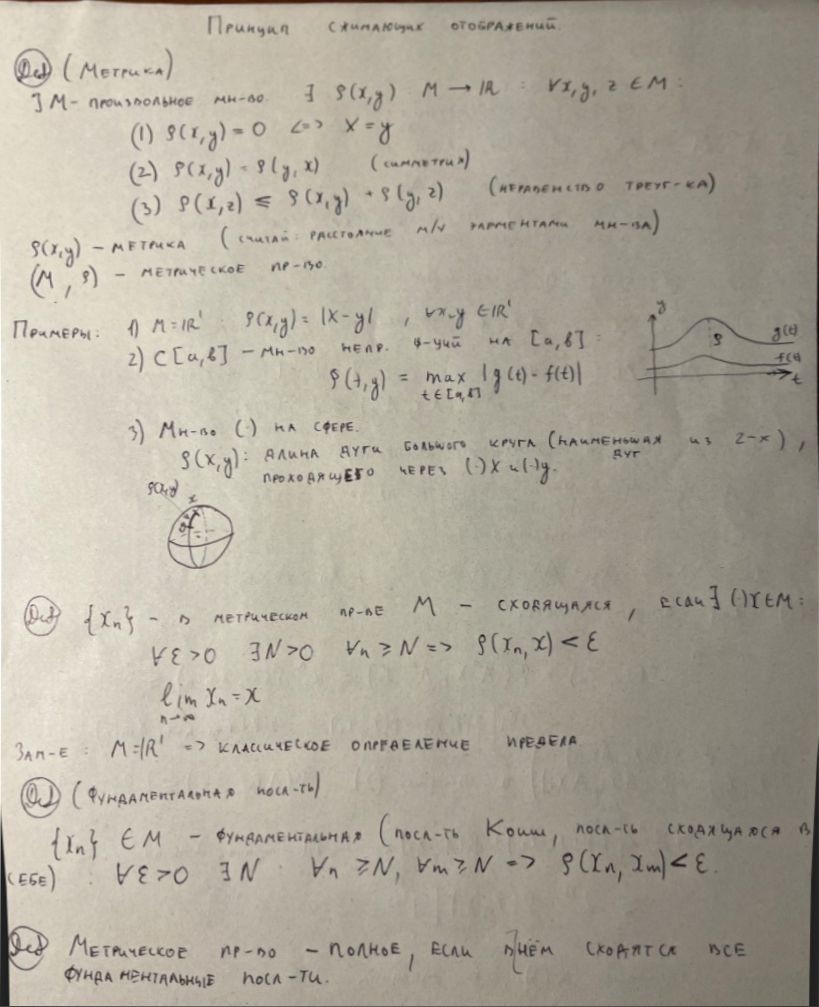 Принцип сжимающих отображений.
Def (Метрика)
] M - произвольное мн-во. ∃ ρ(x,y) M → ℝ : ∀x,y,z ∈ M:
(1) ρ(x,y) = 0 <=> x = y
(2) ρ(x,y) = ρ(y,x) (симметрия)
(3) ρ(x,z) ≤ ρ(x,y) + ρ(y,z) (неравенство треуг-ка)
ρ(x,y) - метрика (считай расстояние м/у элементами мн-ва)
(M, ρ) - метрическое пр-во.
Примеры: 1) M = ℝ¹ ρ(x,y) = |x-y|, ∀x,y ∈ ℝ¹
2) C[a,b] - мн-во непр. ф-ций на [a,b]:
ρ(f,g) = max |g(t) - f(t)|
t∈[a,b]
y
ρ
g(t)
f(t)
t
3) Мн-во (·) на сфере.
ρ(x,y): длина дуги большого круга (наименьшая из 2-х),
дуг
проходящего через (·)x и (·)y.
ρ(x,y)
x
y
Def {xₙ} - в метрическом пр-ве M - сходящаяся, если ∃ (·)x∈M:
∀ε>0 ∃N>0 ∀n ≥ N => ρ(xₙ,x) < ε
lim xₙ = x
n→∞
Зам-е: M=ℝ¹ => классическое определение предела
Def (Фундаментальная посл-ть)
{xₙ} ∈ M - фундаментальная (посл-ть Коши, посл-ть сходящаяся в
себе) : ∀ε>0 ∃N ∀n ≥N, ∀m≥N => ρ(xₙ, xₘ)<ε.
Def Метрическое пр-во - полное, если в нём сходятся все
фундаментальные посл-ти.